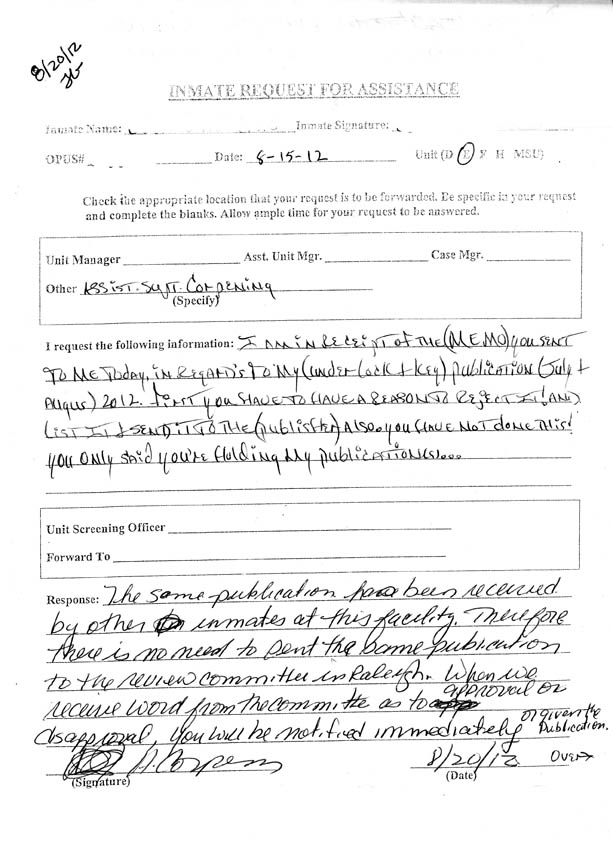 8/20/12
INMATE REQUEST FOR ASSISTANCE
Inmate Name: Inmate Signature:
OPUS# Date: 8-15-12 Unit (D E F H MSU)
Check the appropriate location that your request is to be forwarded. Be specific in your request
and complete the blanks. Allow ample time for your request to be answered.
Unit Manager Asst. Unit Mgr. Case Mgr.
Other Assist. Supt. Corpening
(Specify)
I request the following information: I AM IN RECEIPT OF THE (MEMO) YOU SENT
TO ME TODAY, IN REGARD'S TO MY (UNDER LOCK + KEY) PUBLICATION (July +
Augus) 2012. FIRST YOU HAVE TO HAVE A REASON TO REJECT IT! AND
LIST IT & SEND IT TO THE (PUBLISHER) ALSO. YOU HAVE NOT DONE THIS!
YOU ONLY SAID YOU'RE HOLDING MY PUBLICATION(S)...
Unit Screening Officer
Forward To
Response: The same publication has been received
by other inmates at this facility. Therefore
there is no need to sent the same publication
to the review committee in Raleigh. When we
receive word from the committe as to approval or
disapproval, you will be notified immediately or given the
Publication.
A. Corpening 8/20/12 OVER→
(Signature) (Date)